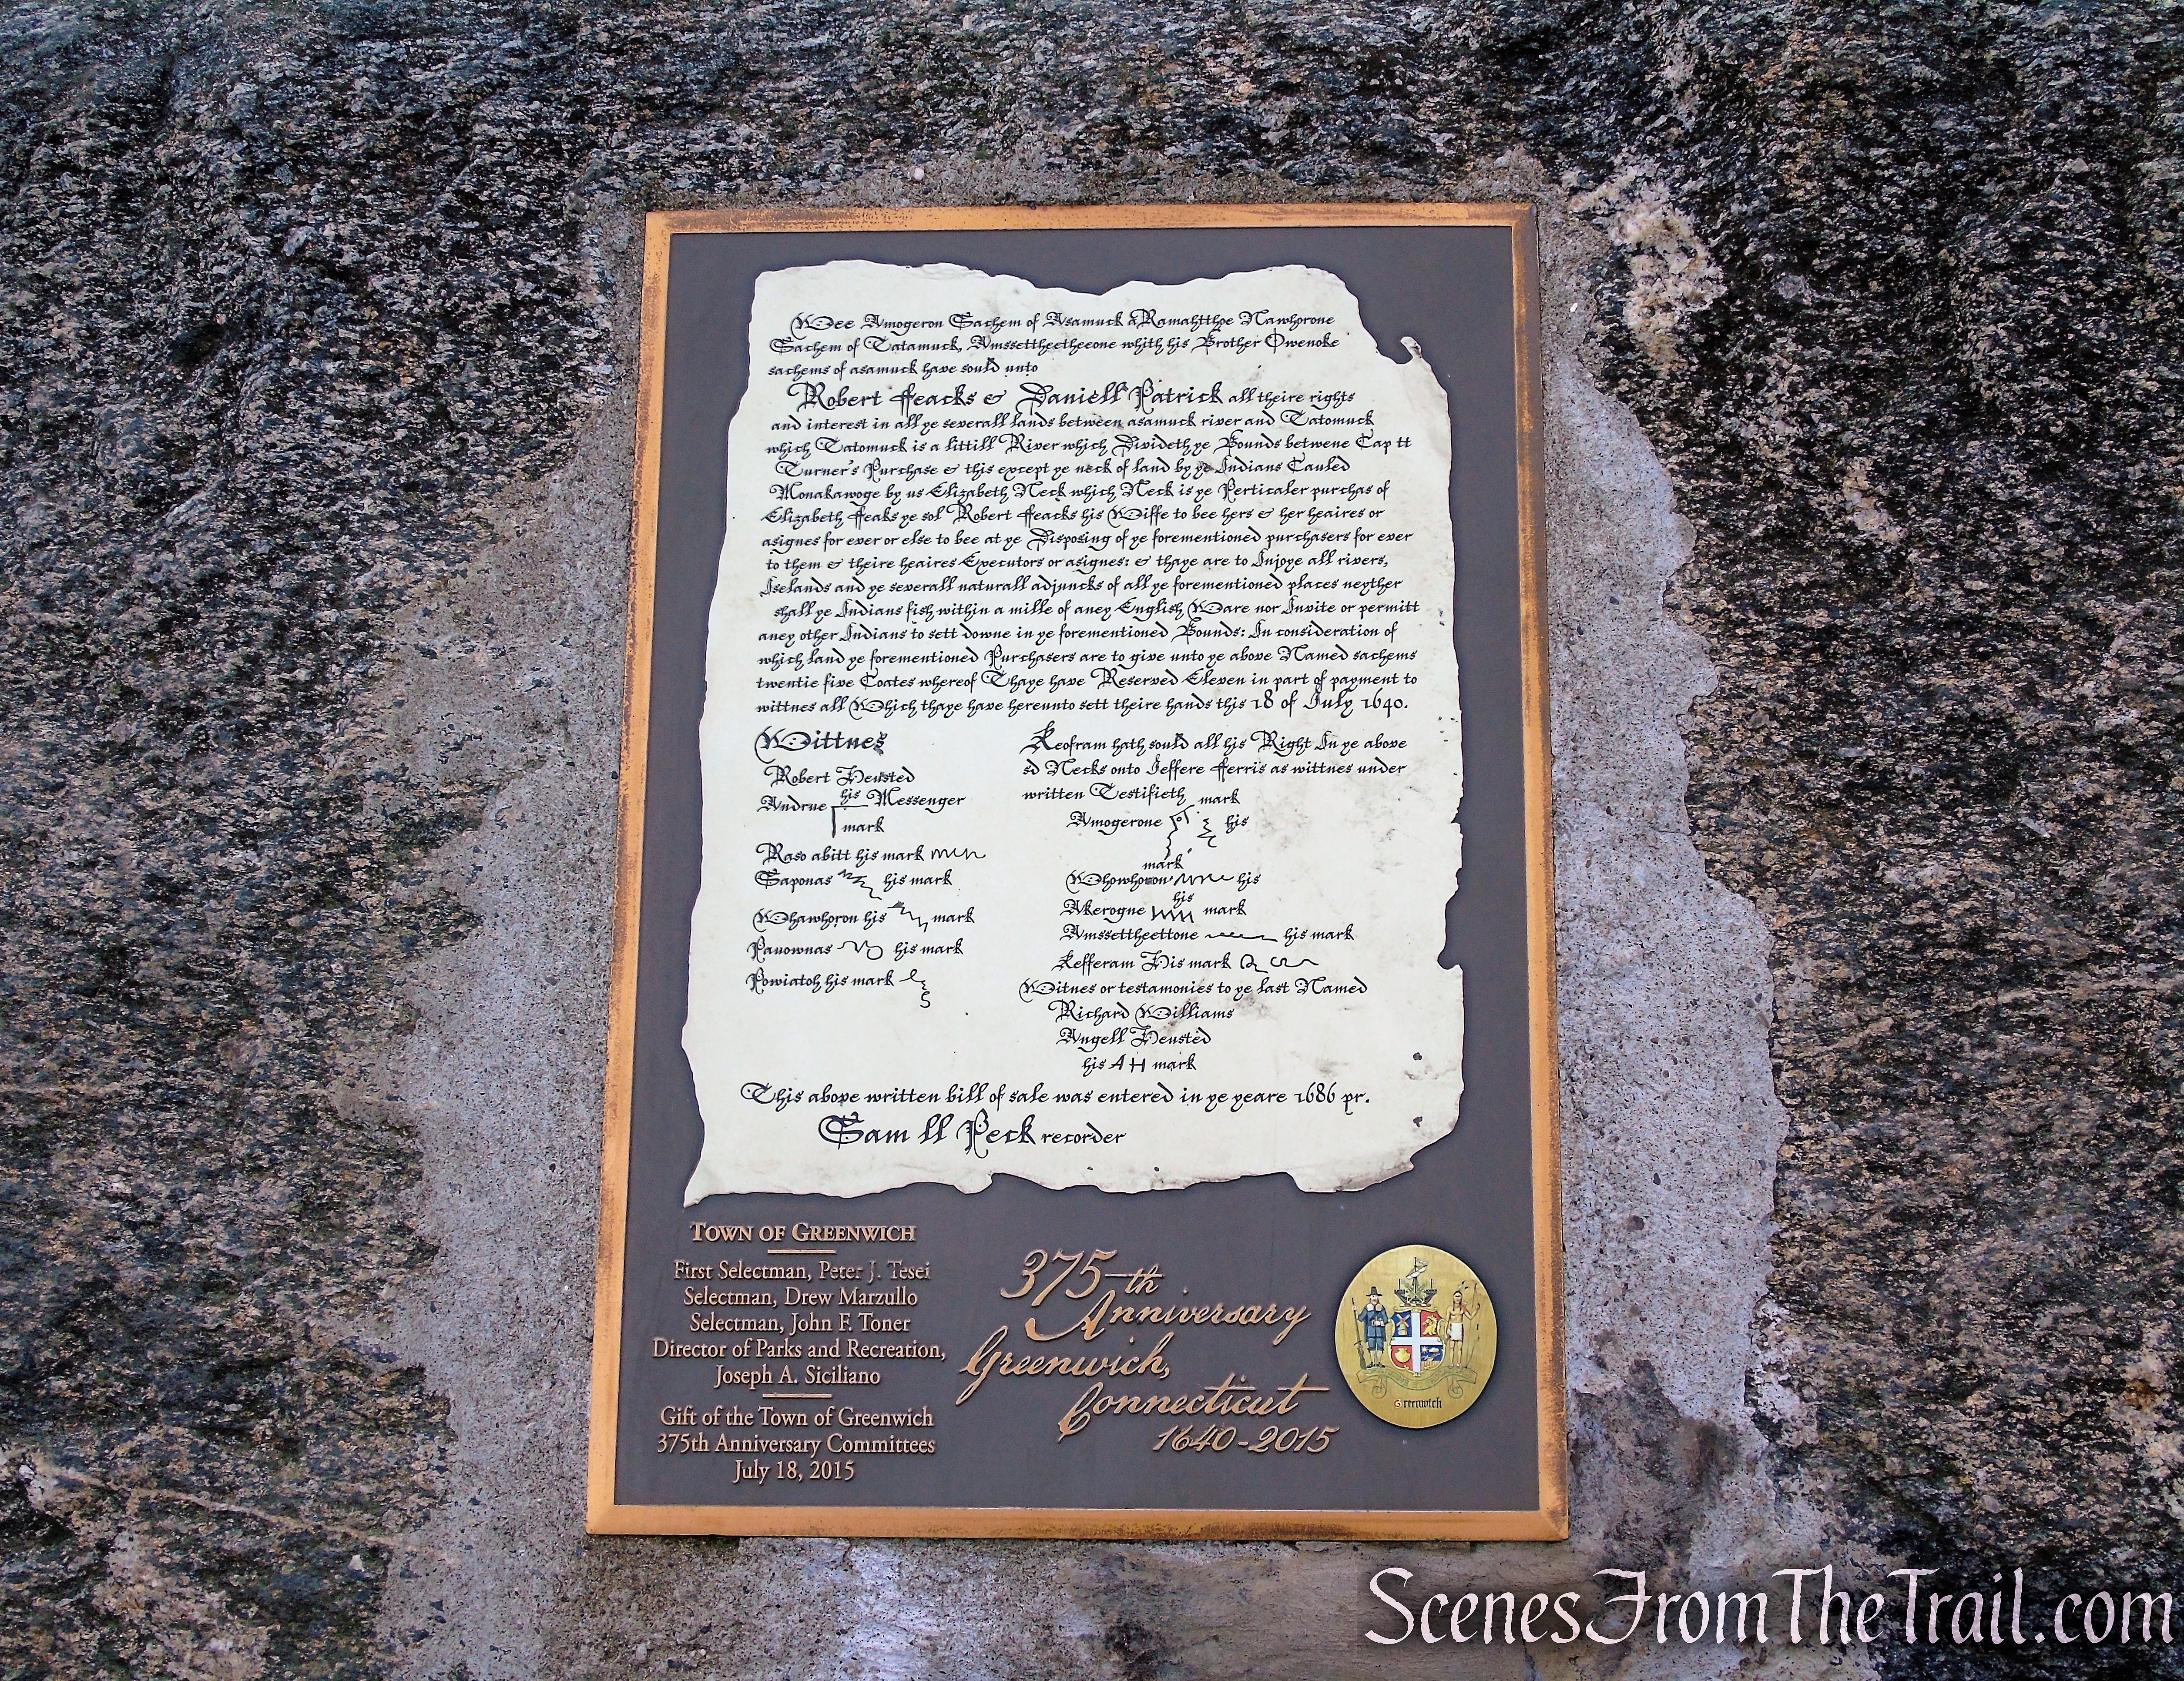 Wee Amogeron Sachem of Asamuck & Ramahtthoe Nawhorone
Sachem of Tatamuck, Amssettheetheeone whith his Brother Owenoke
sachems of asamuck have sould unto
Robert ffeacks & Daniell Patrick all theire rights
and interest in all ye severall lands between asamuck river and Tatomuck
which Tatomuck is a littill River which Divideth ye Bounds betwene Cap tt
Turner's Purchase & this except ye neck of land by ye Indians Cauled
Monakawoge by us Elizabeth Neck which Neck is ye Perticaler purchas of
Elizabeth ffeaks ye sd Robert ffeacks his Wiffe to bee hers & her heaires or
asignes for ever or else to bee at ye Disposing of ye forementioned purchasers for ever
to them & theire heaires Executors or asignes: & thaye are to Injoye all rivers,
Iselands and ye severall naturall adjuncks of all ye forementioned places neyther
shall ye Indians fish within a mille of aney English Ware nor Invite or permitt
aney other Indians to sett downe in ye forementioned Bounds: In consideration of
which land ye forementioned Purchasers are to give unto ye above Named sachems
twentie five Coates whereof Thaye have Reserved Eleven in part of payment to
wittnes all Which thaye have hereunto sett theire hands this 18 of July 1640.
Wittnes
Robert Heusted
Andrue his Messenger
mark
Raso abitt his mark
Saponas his mark
Whawhoron his mark
Pauownas his mark
Powiatoh his mark
Keofram hath sould all his Right In ye above
sd Necks onto Jeffere fferris as wittnes under
written Testifieth mark
Amogerone his
mark
Whowhoron his
his
Akerogne mark
Amssettheettone his mark
Kefferam His mark
Witnes or testamonies to ye last Named
Richard Williams
Angell Heusted
his AH mark
This above written bill of sale was entered in ye yeare 1686 pr.
Sam ll Peck recorder
TOWN OF GREENWICH
First Selectman, Peter J. Tesei
Selectman, Drew Marzullo
Selectman, John F. Toner
Director of Parks and Recreation,
Joseph A. Siciliano
Gift of the Town of Greenwich
375th Anniversary Committees
July 18, 2015
375th
Anniversary
Greenwich,
Connecticut
1640-2015
Greenwich
ScenesFromTheTrail.com